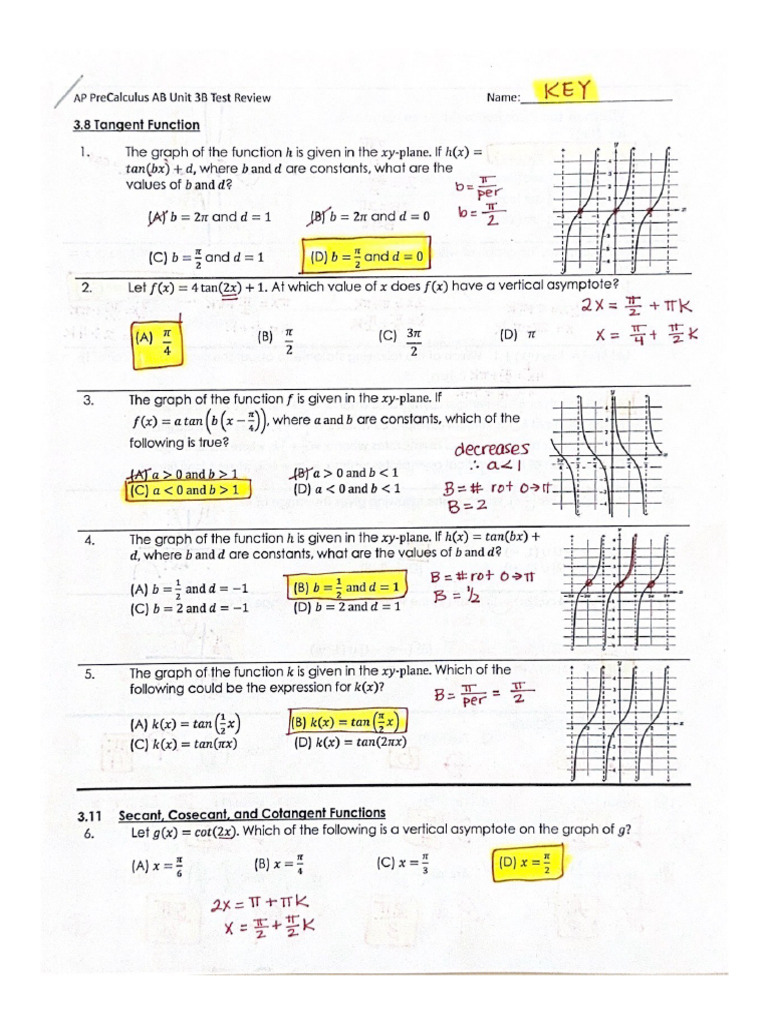 AP PreCalculus AB Unit 3B Test Review Name: KEY
3.8 Tangent Function
1. The graph of the function h is given in the xy-plane. If h(x) =
tan(bx) + d, where b and d are constants, what are the
values of b and d?
b = π/per
b = π/2
(A) b = 2π and d = 1 (B) b = 2π and d = 0
(C) b = π/2 and d = 1 (D) b = π/2 and d = 0
2. Let f(x) = 4 tan(2x) + 1. At which value of x does f(x) have a vertical asymptote?
2x = π/2 + πK
(A) π/4 (B) π/2 (C) 3π/2 (D) π
x = π/4 + π/2 K
3. The graph of the function f is given in the xy-plane. If
f(x) = a tan(b(x − π/4)), where a and b are constants, which of the
following is true?
decreases
∴ a<1
(A) a > 0 and b > 1 (B) a > 0 and b < 1
(C) a < 0 and b > 1 (D) a < 0 and b < 1
B = # rot 0→π
B = 2
4. The graph of the function h is given in the xy-plane. If h(x) = tan(bx) +
d, where b and d are constants, what are the values of b and d?
(A) b = 1/2 and d = −1 (B) b = 1/2 and d = 1
(C) b = 2 and d = −1 (D) b = 2 and d = 1
B = # rot 0→π
B = 1/2
5. The graph of the function k is given in the xy-plane. Which of the
following could be the expression for k(x)?
B = π/per = π/2
(A) k(x) = tan(1/2 x) (B) k(x) = tan(π/2 x)
(C) k(x) = tan(πx) (D) k(x) = tan(2πx)
3.11 Secant, Cosecant, and Cotangent Functions
6. Let g(x) = cot(2x). Which of the following is a vertical asymptote on the graph of g?
(A) x = π/6 (B) x = π/4 (C) x = π/3 (D) x = π/2
2x = π + πK
x = π/2 + π/2 K